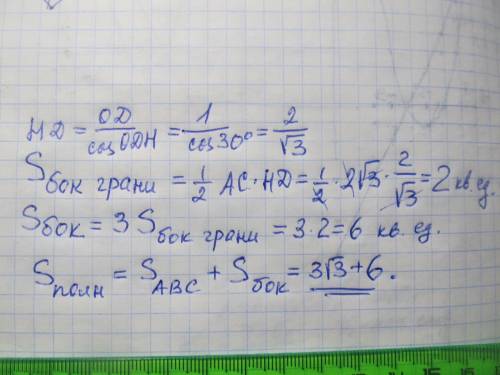 HD = OD/cos ODH = 1/cos 30° = 2/√3
S бок грани = 1/2 AC · HD = 1/2 · 2√3 · 2/√3 = 2 кв. ед.
S бок = 3 S бок грани = 3 · 2 = 6 кв. ед.
S полн = S ABC + S бок = 3√3 + 6 .